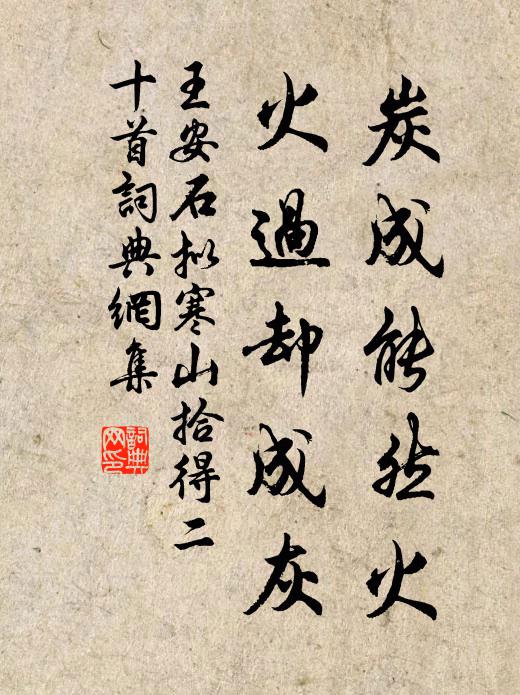 炭成能然火
火過却成灰
王安石拟寒山拾得二
十首詞典網集
詞典
网印